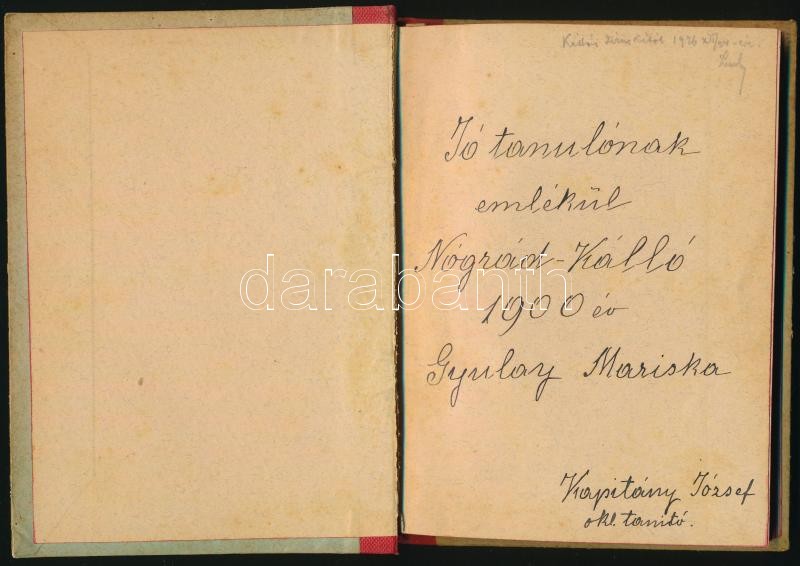 1926
Jó tanulónak
emlékül
Nógrád-Kálló
1900 év
Gyulay Mariska
Kapitány József
okl. tanító.
darabanth